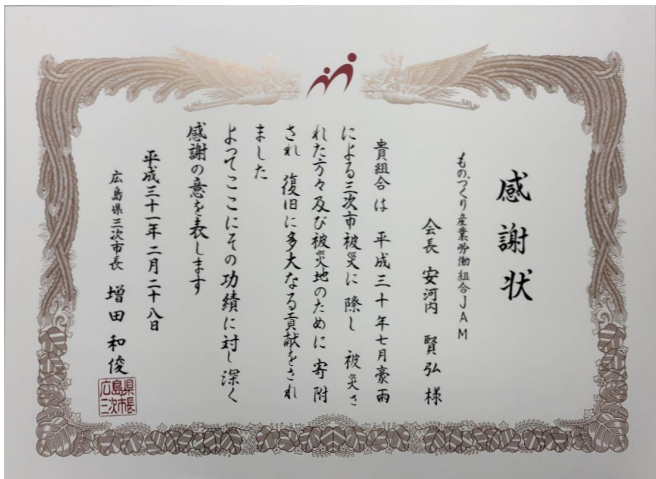 感謝状
ものづくり産業労働組合JAM
会長 安河内 賢弘 様
貴組合は 平成三十年七月豪雨
による三次市被災に際し 被災さ
れた方々及び被災地のために 寄附
され 復旧に多大なる貢献をされ
ました
よってここにその功績に対し深く
感謝の意を表します
平成三十一年二月二十八日
広島県三次市長 増田 和俊
広島県
三次市長